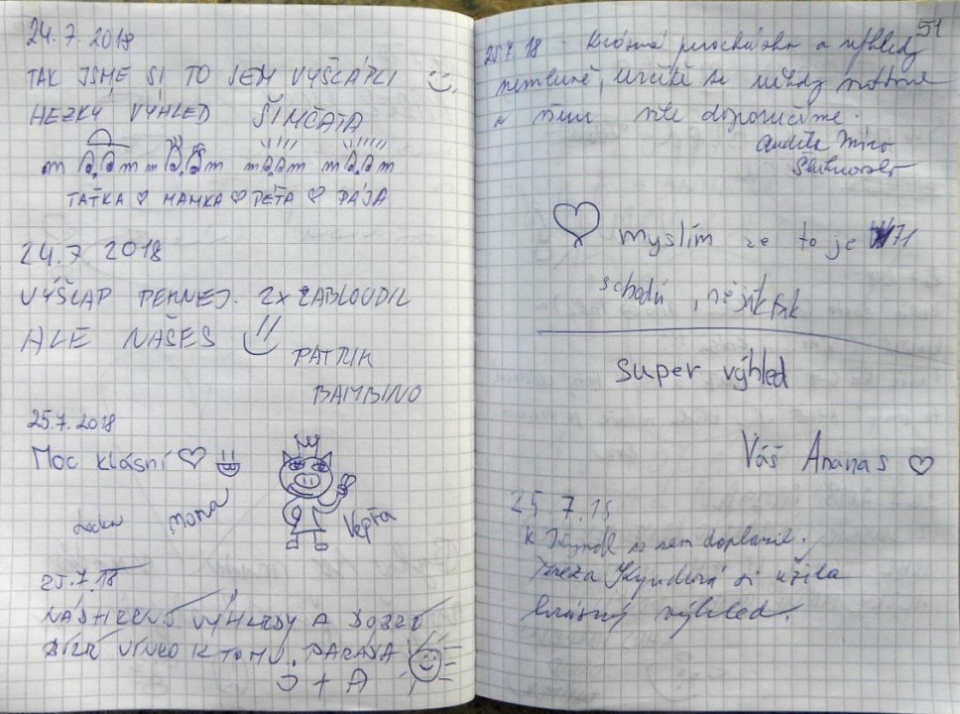 24.7.2018
TAK JSME SI TO SEM VYŠLÁPLI
HEZKÝ VÝHLED ŠIMČATA
TAŤKA ♡ MAMKA ♡ PÉŤA ♡ PÁJA
24.7 2018
VÝŠLAP PEKNEJ. 2X ZABLOUDIL
ALE NAŠEŠ
PATRIK
BAMBINO
25.7.2018
Moc klásní ♡
Mona
Vepřa
25.7.18
NÁDHERNÉ VÝHLEDY A DOBRÉ
VÍNKO K TOMU. PARÁDA
J + A
51
25.7.18 Krásná procházka a výhledy
nemluvě, určitě se někdy
a všem vše doporučíme.
Miro
♡ myslím ze to je 171
schodů, nějak tak
super výhled
Váš Ananas ♡
25.7.18
K se sem doplazil.
Tereza si užila
krásný výhled.